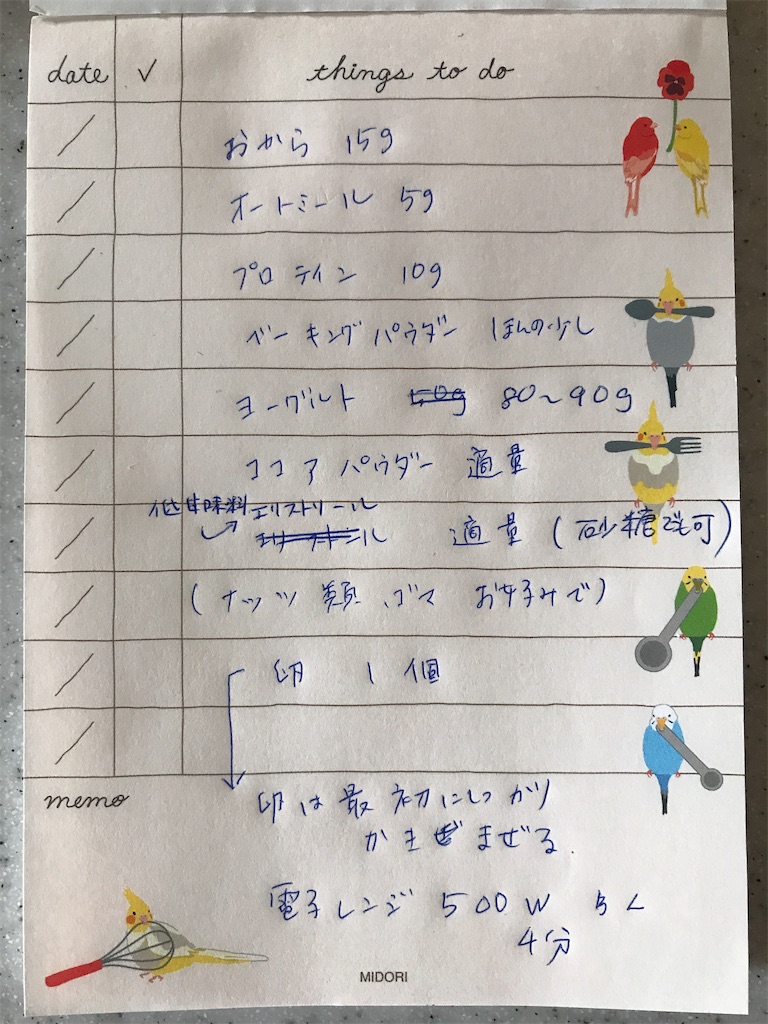 date ✓ things to do
おから 15g
オートミール 5g
プロテイン 10g
ベーキングパウダー ほんの少し
ヨーグルト 80~90g
ココアパウダー 適量
低甘味料 エリストリール
適量 (砂糖でも可)
(ナッツ類、ゴマ お好みで)
卵 1個
memo
卵は最初にしっかり
かきまぜる.
電子レンジ 500W
4分
MIDORI